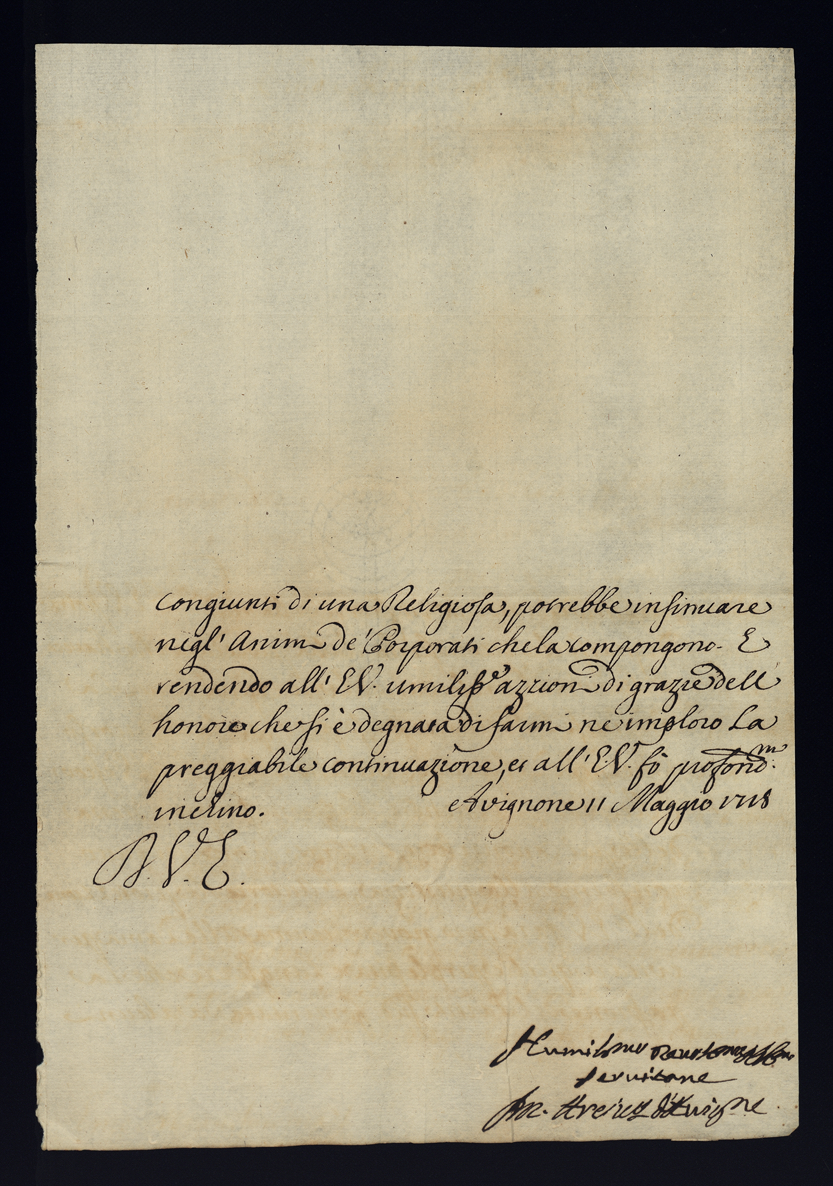 congiunti di una Religiosa, potrebbe insinuare
negl' Animi de' Porporati che la compongono. E
rendendo all' E.V. umiliss.e azzioni di grazie dell
honore che si è degnata di farmi ne imploro La
preggiabile continuazione, et all' E.V. fò profond.m
inchino. Avignone 11 Maggio 1718
B. V. E.
Humilissimo
servitore
Arciv. d'Avigne